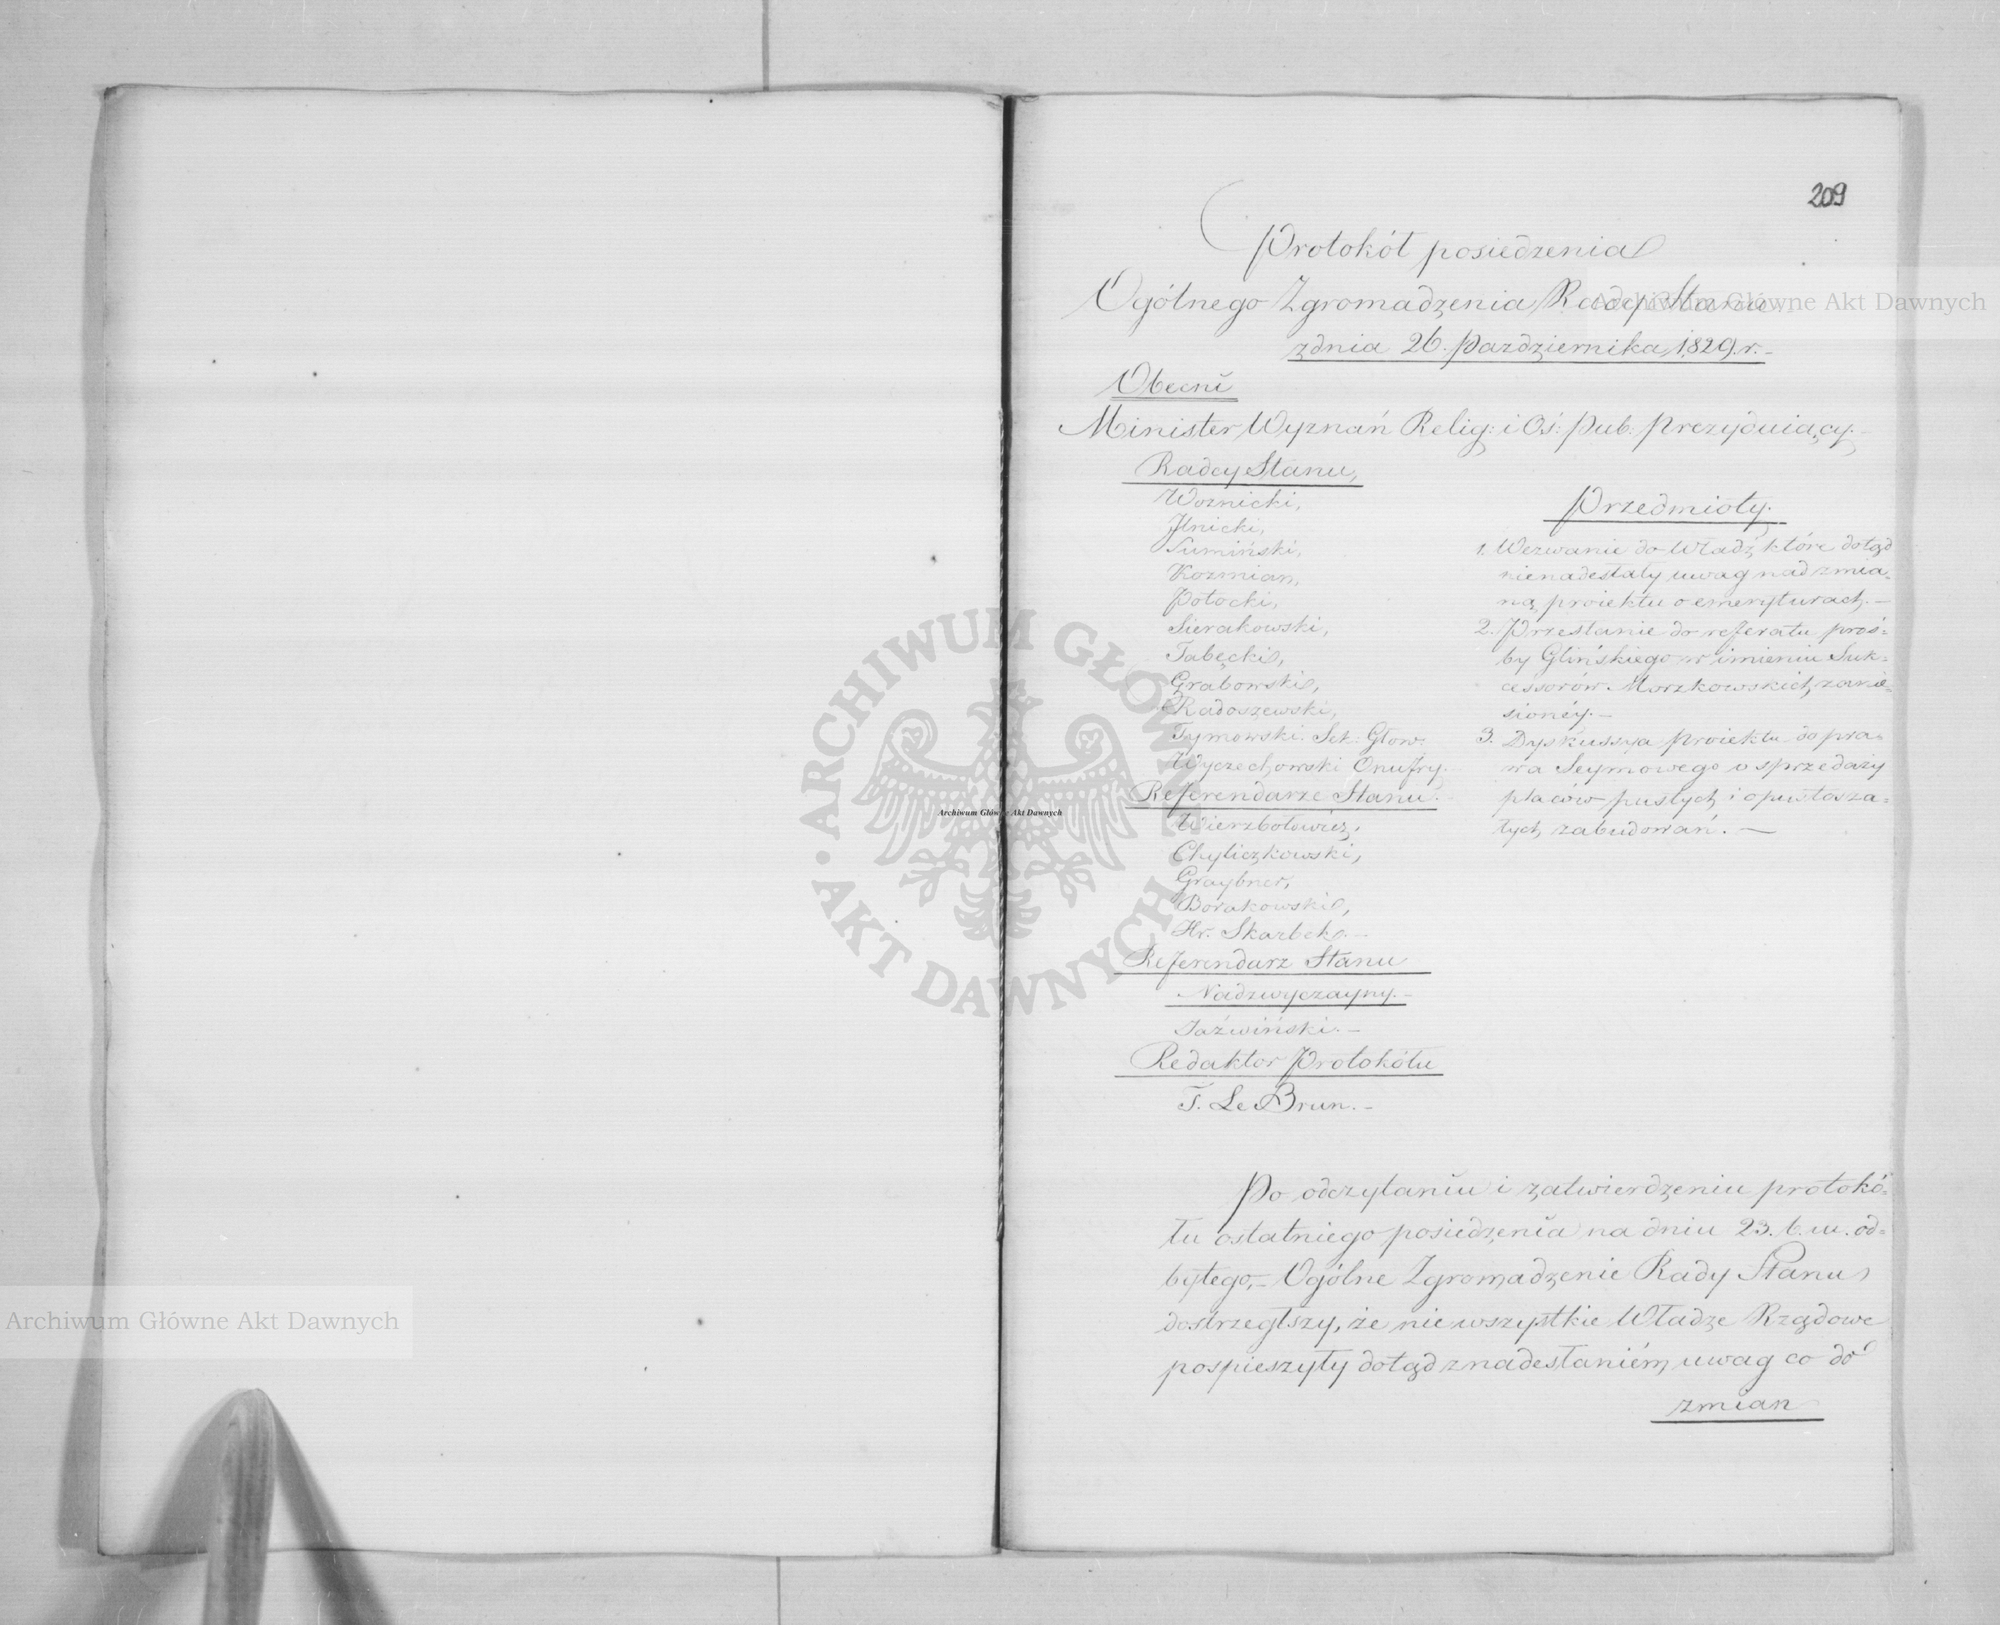 209
Protokół posiedzenia
Ogólnego Zgromadzenia Rady Stanu
z dnia 26. Pazdziernika 1829. r. -
Obecni
Minister Wyznań Relig: i Oś: Pub: Prezyduiący. -
Radcy Stanu,
Woznicki,
Jlnicki,
Sumiński,
Kozmian,
Potocki,
Sierakowski,
Tabęcki,
Grabowski,
Radoszewski,
Tymowski. Sek: Głow:
Wyczechowski Onufry.
Referendarze Stanu.
Wierzbołowicz,
Chyliczkowski,
Graybner,
Borakowski,
Hr. Skarbek. -
Referendarz Stanu
Nadzwyczayny. -
Jaźwiński. -
Redaktor Protokółu
T. Le Brun. -
Przedmioty.
1. Wezwanie do Władz które dotąd
nienadesłały uwag nad zmia-
ną proiektu o emeryturach. -
2. Przesłanie do referatu proś-
by Glińskiego w imieniu Suk-
cessorów Morzkowskich zanie-
sionéy. -
3. Dyskussya Proiektu do pra-
wa Seymowego o sprzedaży
placów pustych i opustosza-
łych zabudowań. -
Po odczytaniu i zatwierdzeniu protokó-
łu ostatniego posiedzenia na dniu 23. b. m. od-
bytego, - Ogólne Zgromadzenie Rady Stanu
dostrzegłszy, że nie wszystkie Władze Rządowe
pospieszyły dotąd z nadesłaniém uwag co do
zmian
Archiwum Główne Akt Dawnych
Archiwum Główne Akt Dawnych
Archiwum Główne Akt Dawnych
ARCHIWUM GŁÓWNE • AKT DAWNYCH •